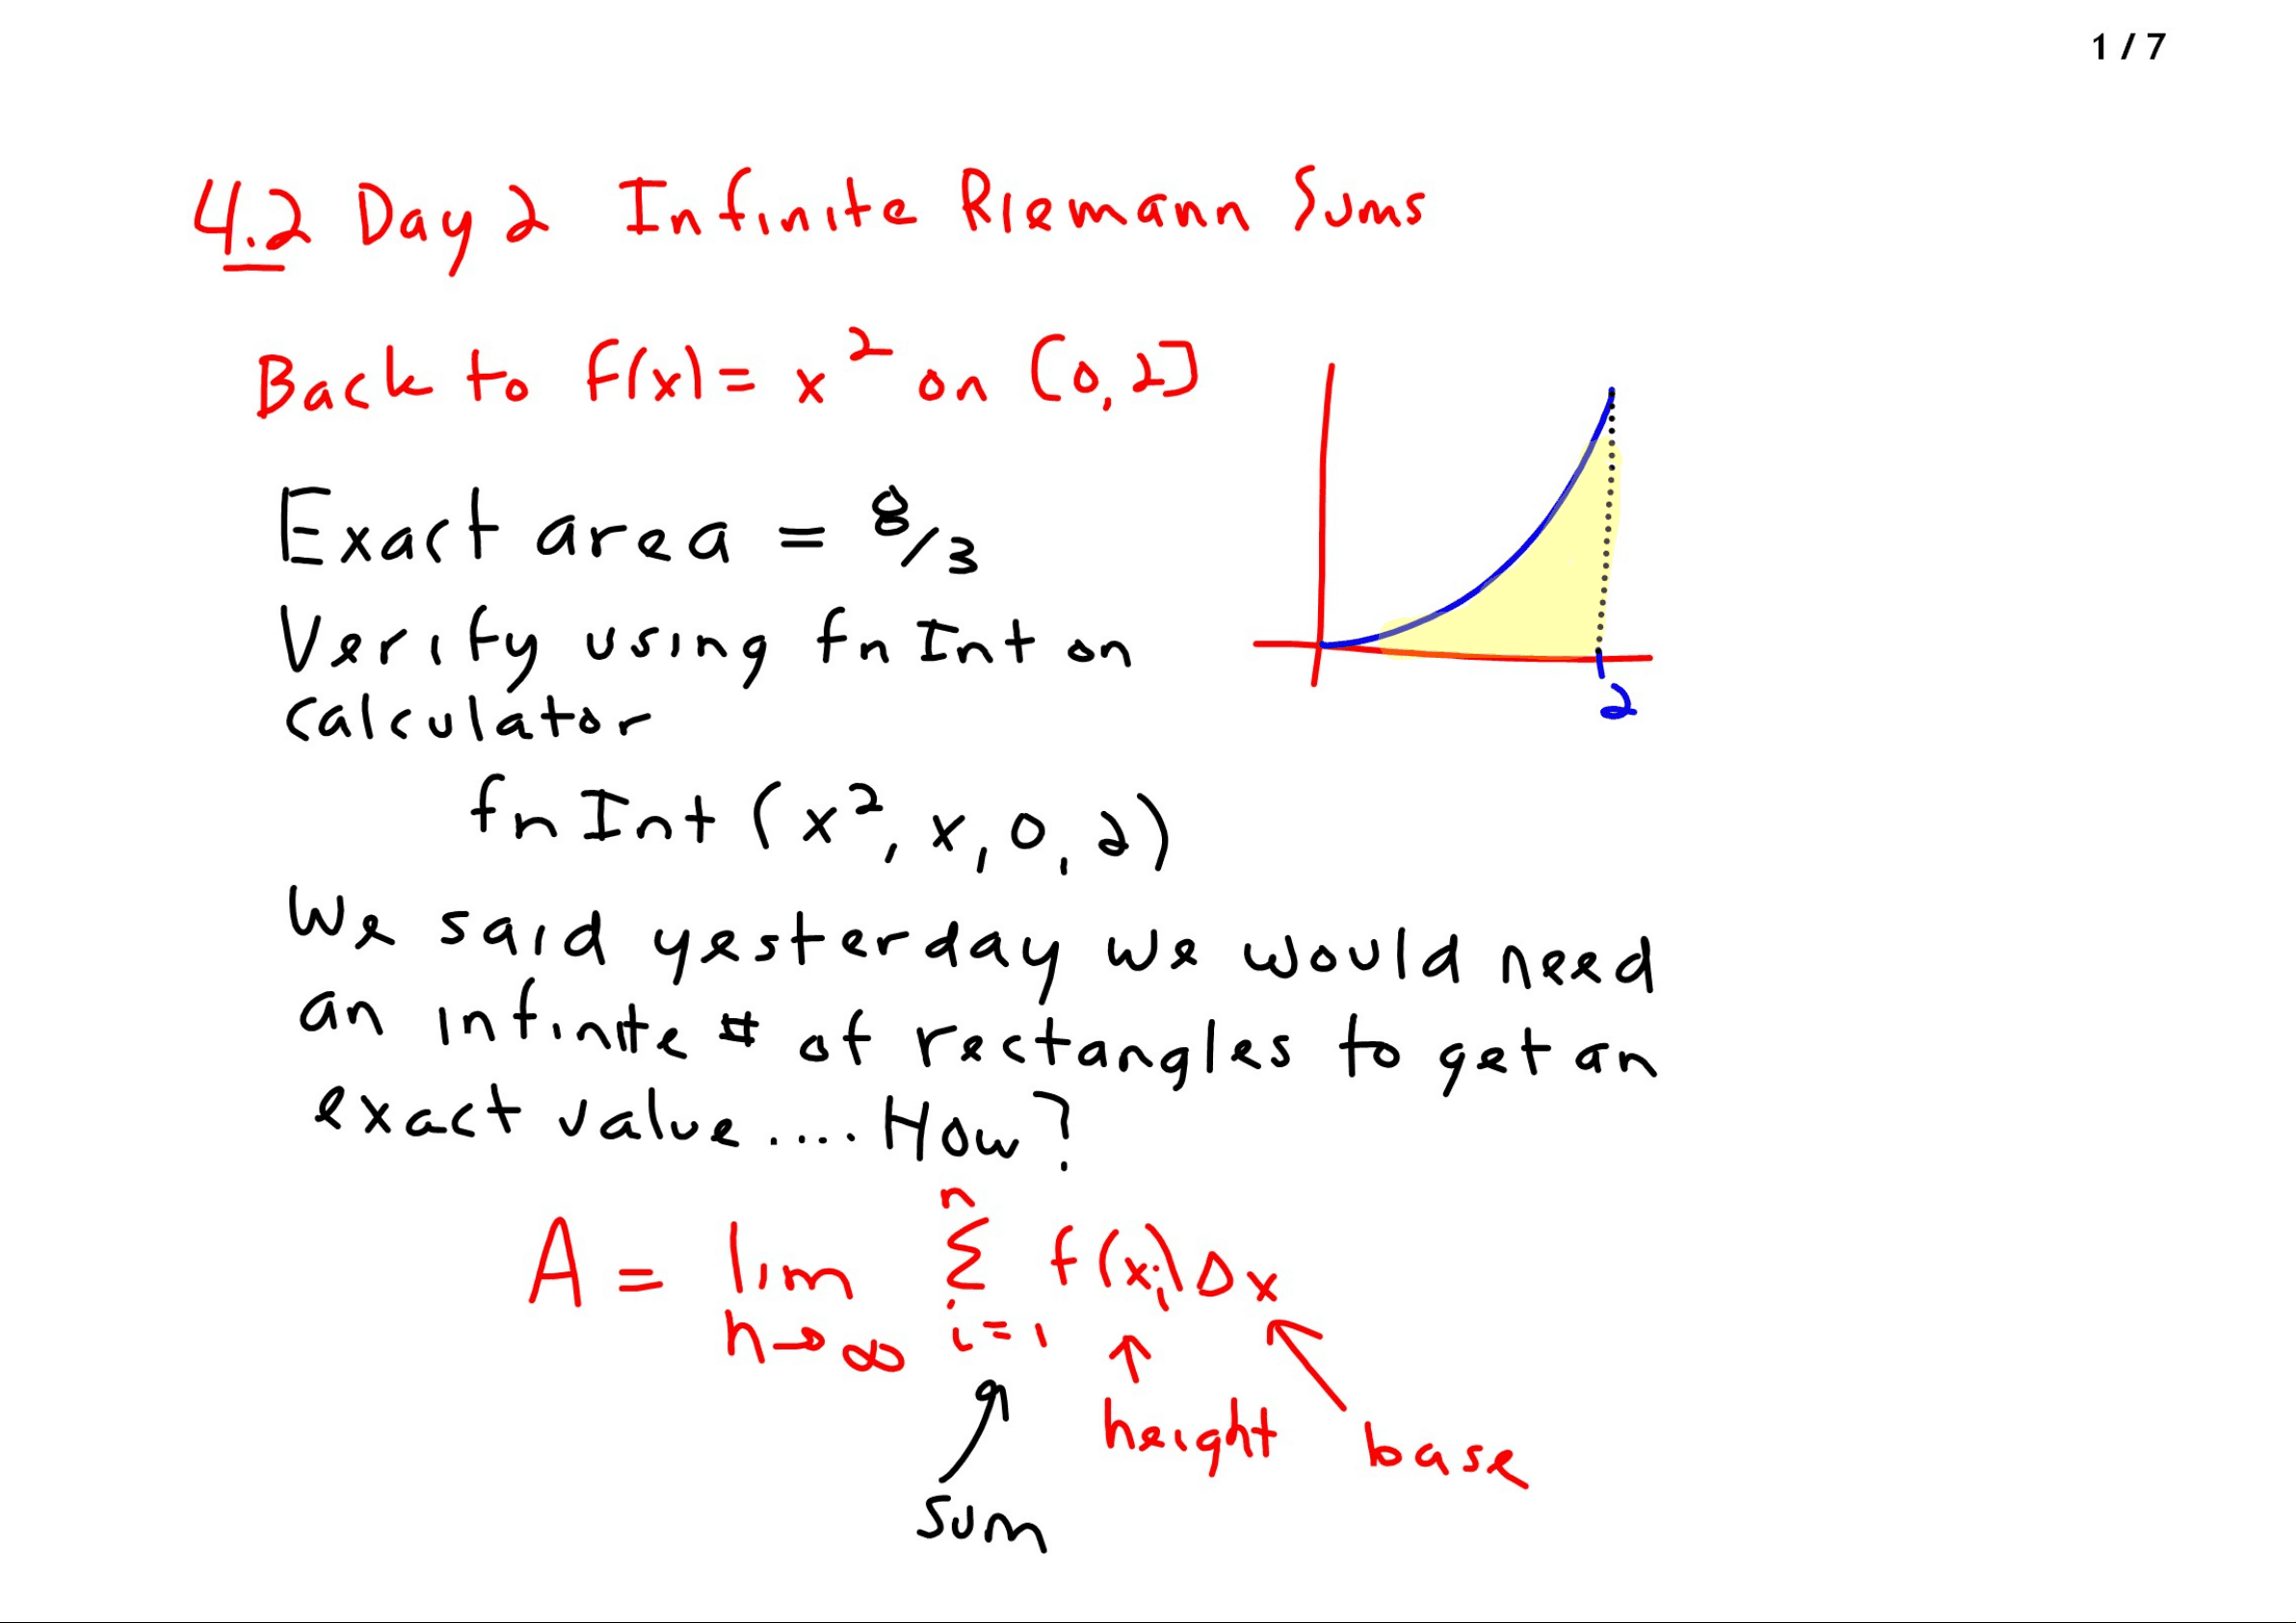 1 / 7
4.2 Day 2 Infinite Riemann Sums
Back to f(x) = x² on [0,2]
Exact area = 8/3
Verify using fnInt on
calculator
fnInt (x², x, 0, 2)
2
We said yesterday we would need
an infinite # of rectangles to get an
exact value.... How?
n
A = lim Σ f(xᵢ) Δx
n→∞ i=1
height
base
Sum